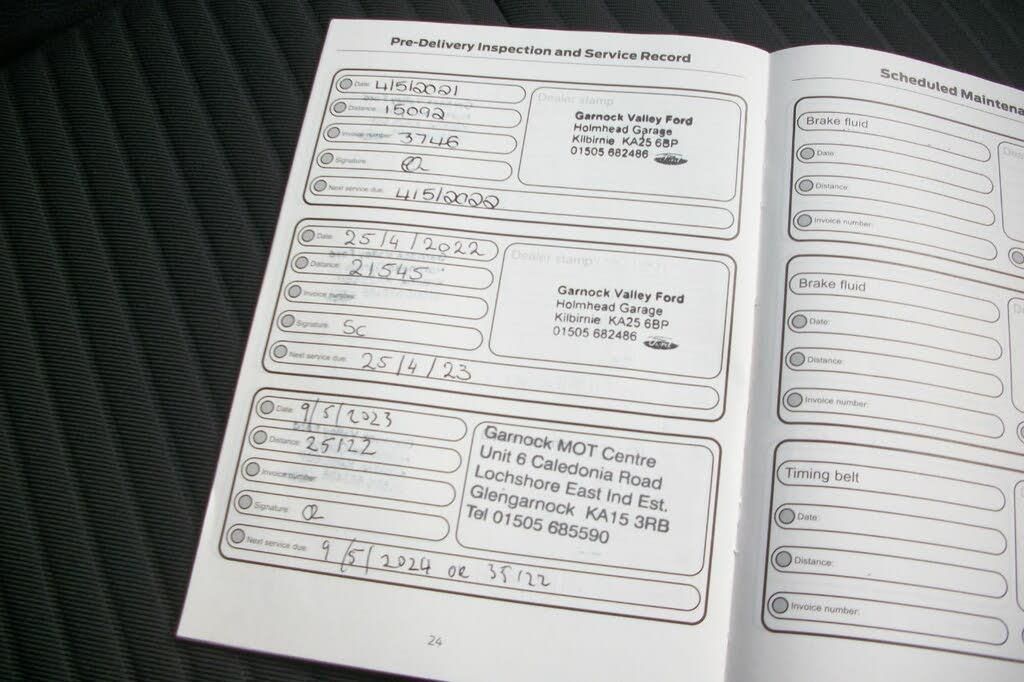 Pre-Delivery Inspection and Service Record
Date: 4/5/2021
Distance: 15092
Invoice number: 3746
Signature:
Next service due: 4/5/2022
Dealer stamp
Garnock Valley Ford
Holmhead Garage
Kilbirnie KA25 6BP
01505 682486 Ford
Date: 25/4/2022
Distance: 21545
Invoice number:
Signature: Sc
Next service due: 25/4/23
Dealer stamp
Garnock Valley Ford
Holmhead Garage
Kilbirnie KA25 6BP
01505 682486 Ford
Date: 9/5/2023
Distance: 25122
Invoice number:
Signature:
Next service due: 9/5/2024 or 35122
Garnock MOT Centre
Unit 6 Caledonia Road
Lochshore East Ind Est.
Glengarnock KA15 3RB
Tel 01505 685590
24
Scheduled
Brake fluid
Date:
Distance:
Invoice number:
Brake fluid
Date:
Distance:
Invoice number:
Timing belt
Date:
Distance:
Invoice number: